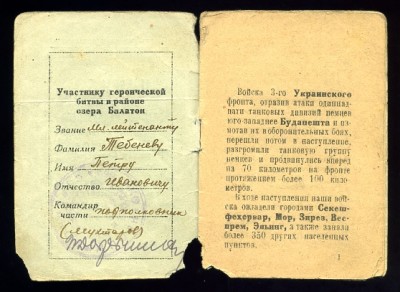 Участнику героической
битвы в районе
озера Балатон
Звание Мл. лейтенанту
Фамилия Тебеневу
Имя Петру
Отчество Ивановичу
Командир
части подполковник
(Мухтаров)
Войска 3-го Украинского
фронта, отразив атаки одиннад-
цати танковых дивизий немцев
юго-западнее Будапешта и из-
мотав их в оборонительных боях,
перешли потом в наступление,
разгромили танковую группу
немцев и продвинулись вперед
на 70 километров на фронте
протяжением более 100 кило-
метров.
В ходе наступления наши вой-
ска овладели городами Секеш-
фехервар, Мор, Зирез, Вес-
прем, Эньинг, а также заняли
более 350 других населенных
пунктов.
1